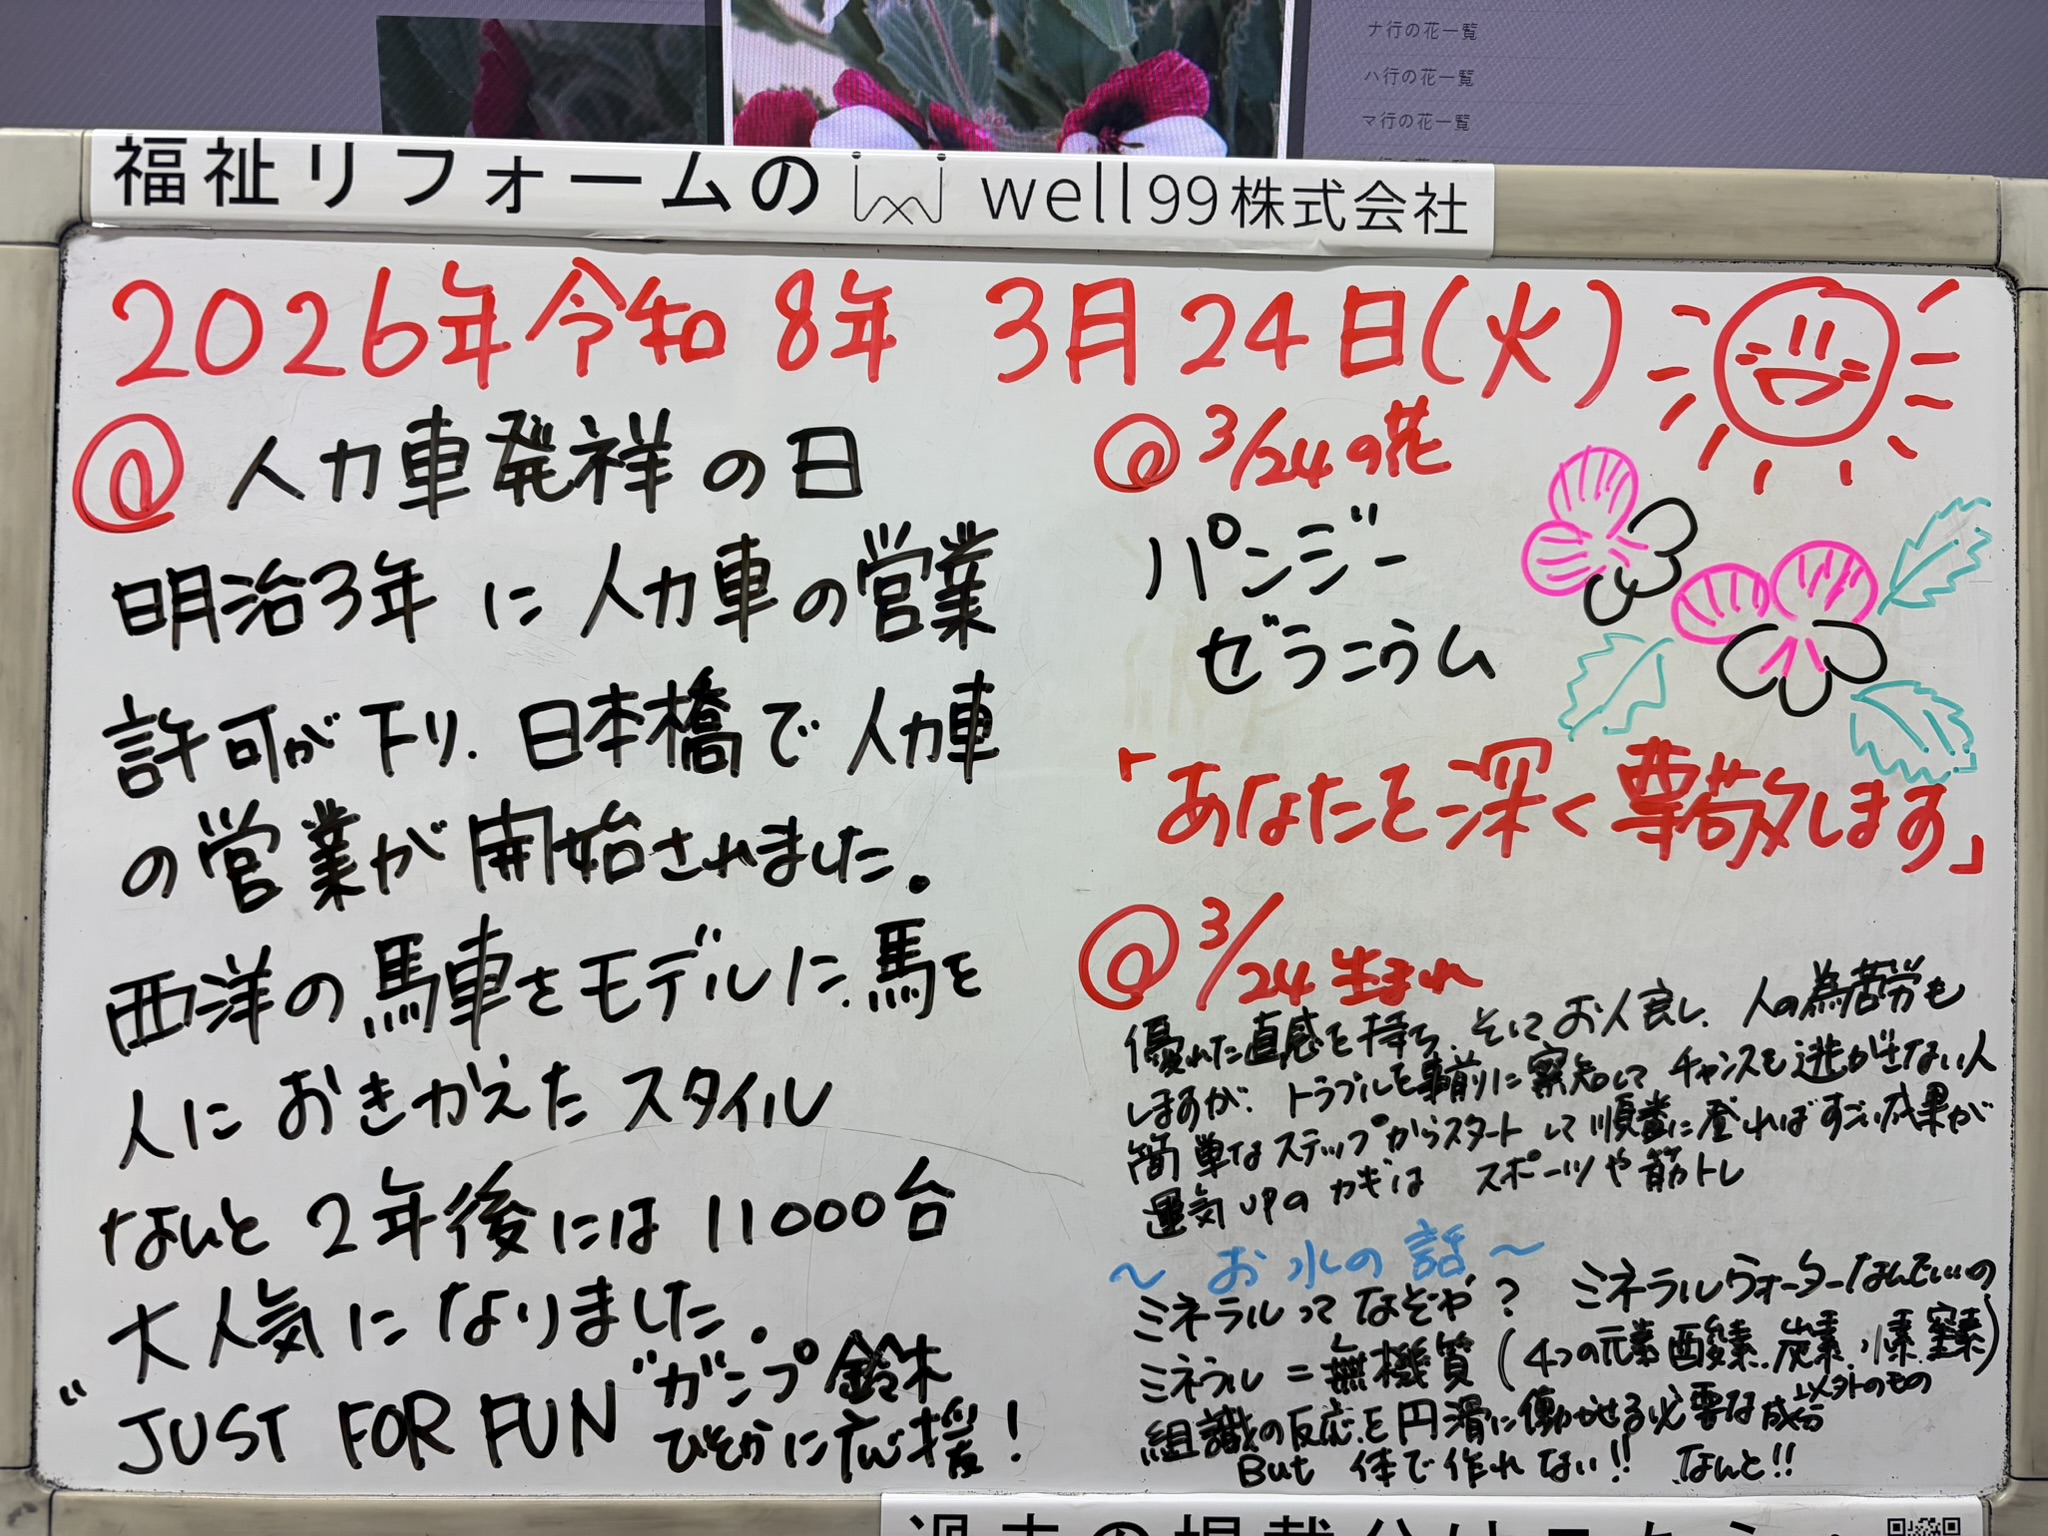 ナ行の花一覧
ハ行の花一覧
マ行の花一覧
福祉リフォームの well99株式会社
2026年令和8年 3月24日(火)
@ 人力車発祥の日
明治3年に人力車の営業
許可が下り、日本橋で人力車
の営業が開始されました。
西洋の馬車をモデルに、馬を
人におきかえたスタイル
なんと2年後には11000台
大人気になりました。
"JUST FOR FUN" ガンプ鈴木
ひそかに応援!
@ 3/24の花
パンジー
ゼラニウム
「あなたを深く尊敬します」
@ 3/24生まれ
優れた直感を持ち、そしてお人良し、人の為苦労も
しますが、トラブルを事前に察知してチャンスも逃がさない人
簡単なステップからスタートして順番に登ればすごい成果が
運気UPのカギは スポーツや筋トレ
~お水の話~
ミネラルってなぞや? ミネラルウォーターなんでいいの
ミネラル=無機質(4つの元素 酸素、炭素、水素、窒素)
以外のもの
組織の反応を円滑に働かせる必要な成分
But 体で作れない!! なんと!!